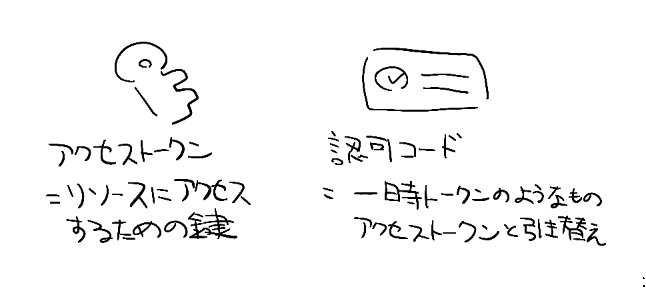 アクセストークン
=リソースにアクセス
するための鍵
認可コード
= 一時トークンのようなもの
アクセストークンと引き替え